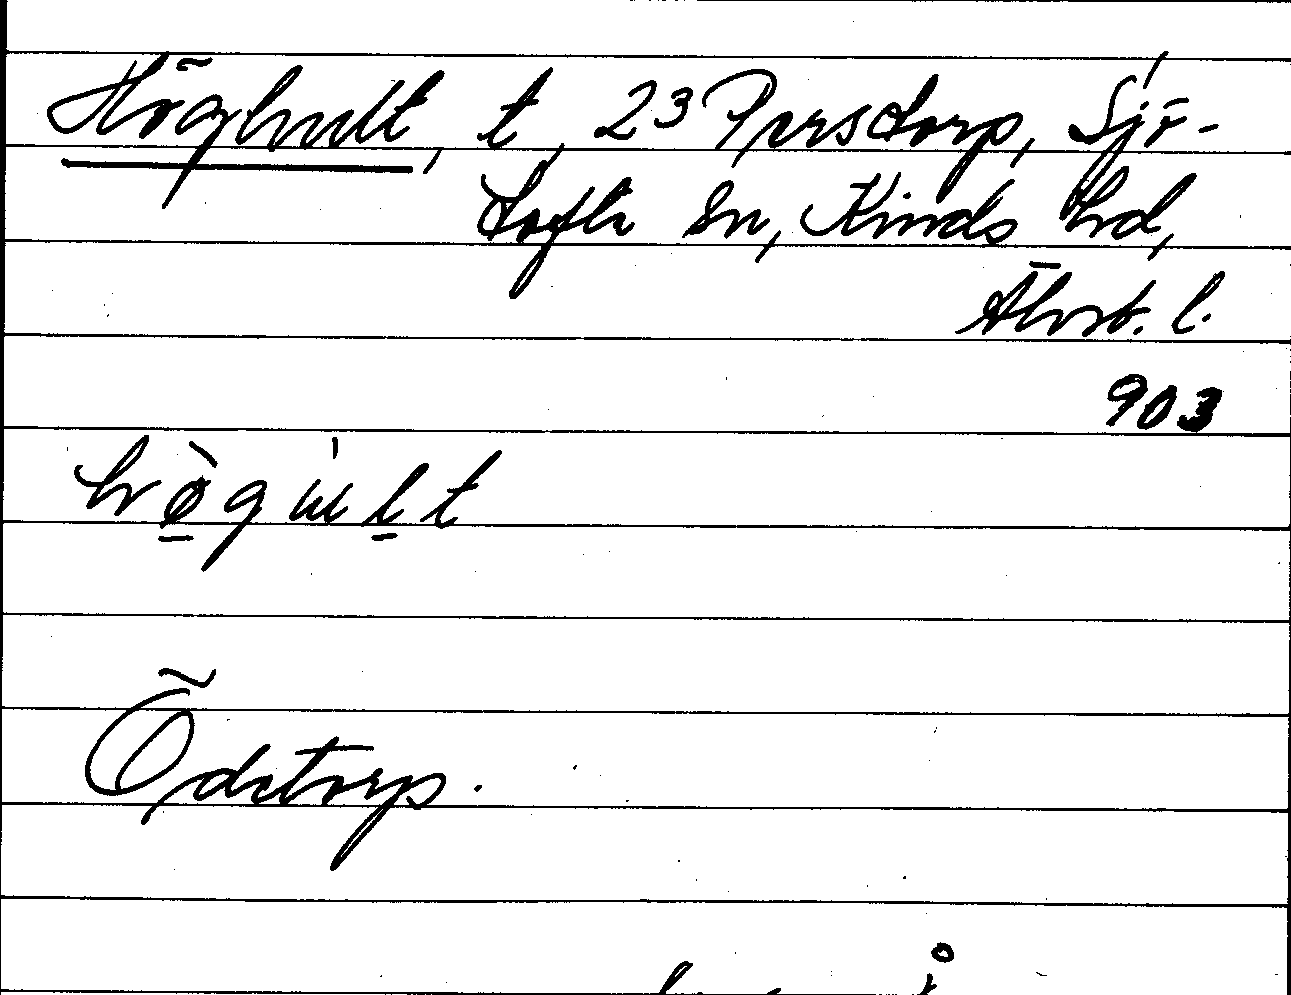 Höghult, t, 23 Persdorp, Sjö-
tofta sn, Kinds hd,
Älvsb. l.
903
hø̀gu̍lt
Ödetorp.